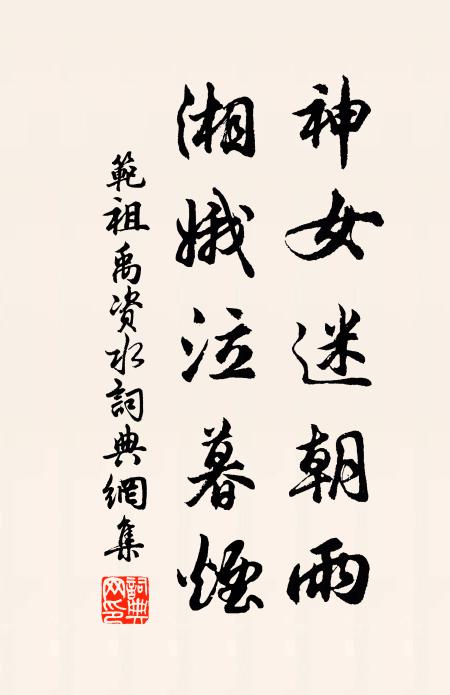 神女迷朝雨
湘娥泣暮煙
範祖禹資水詞典網集
詞典网印